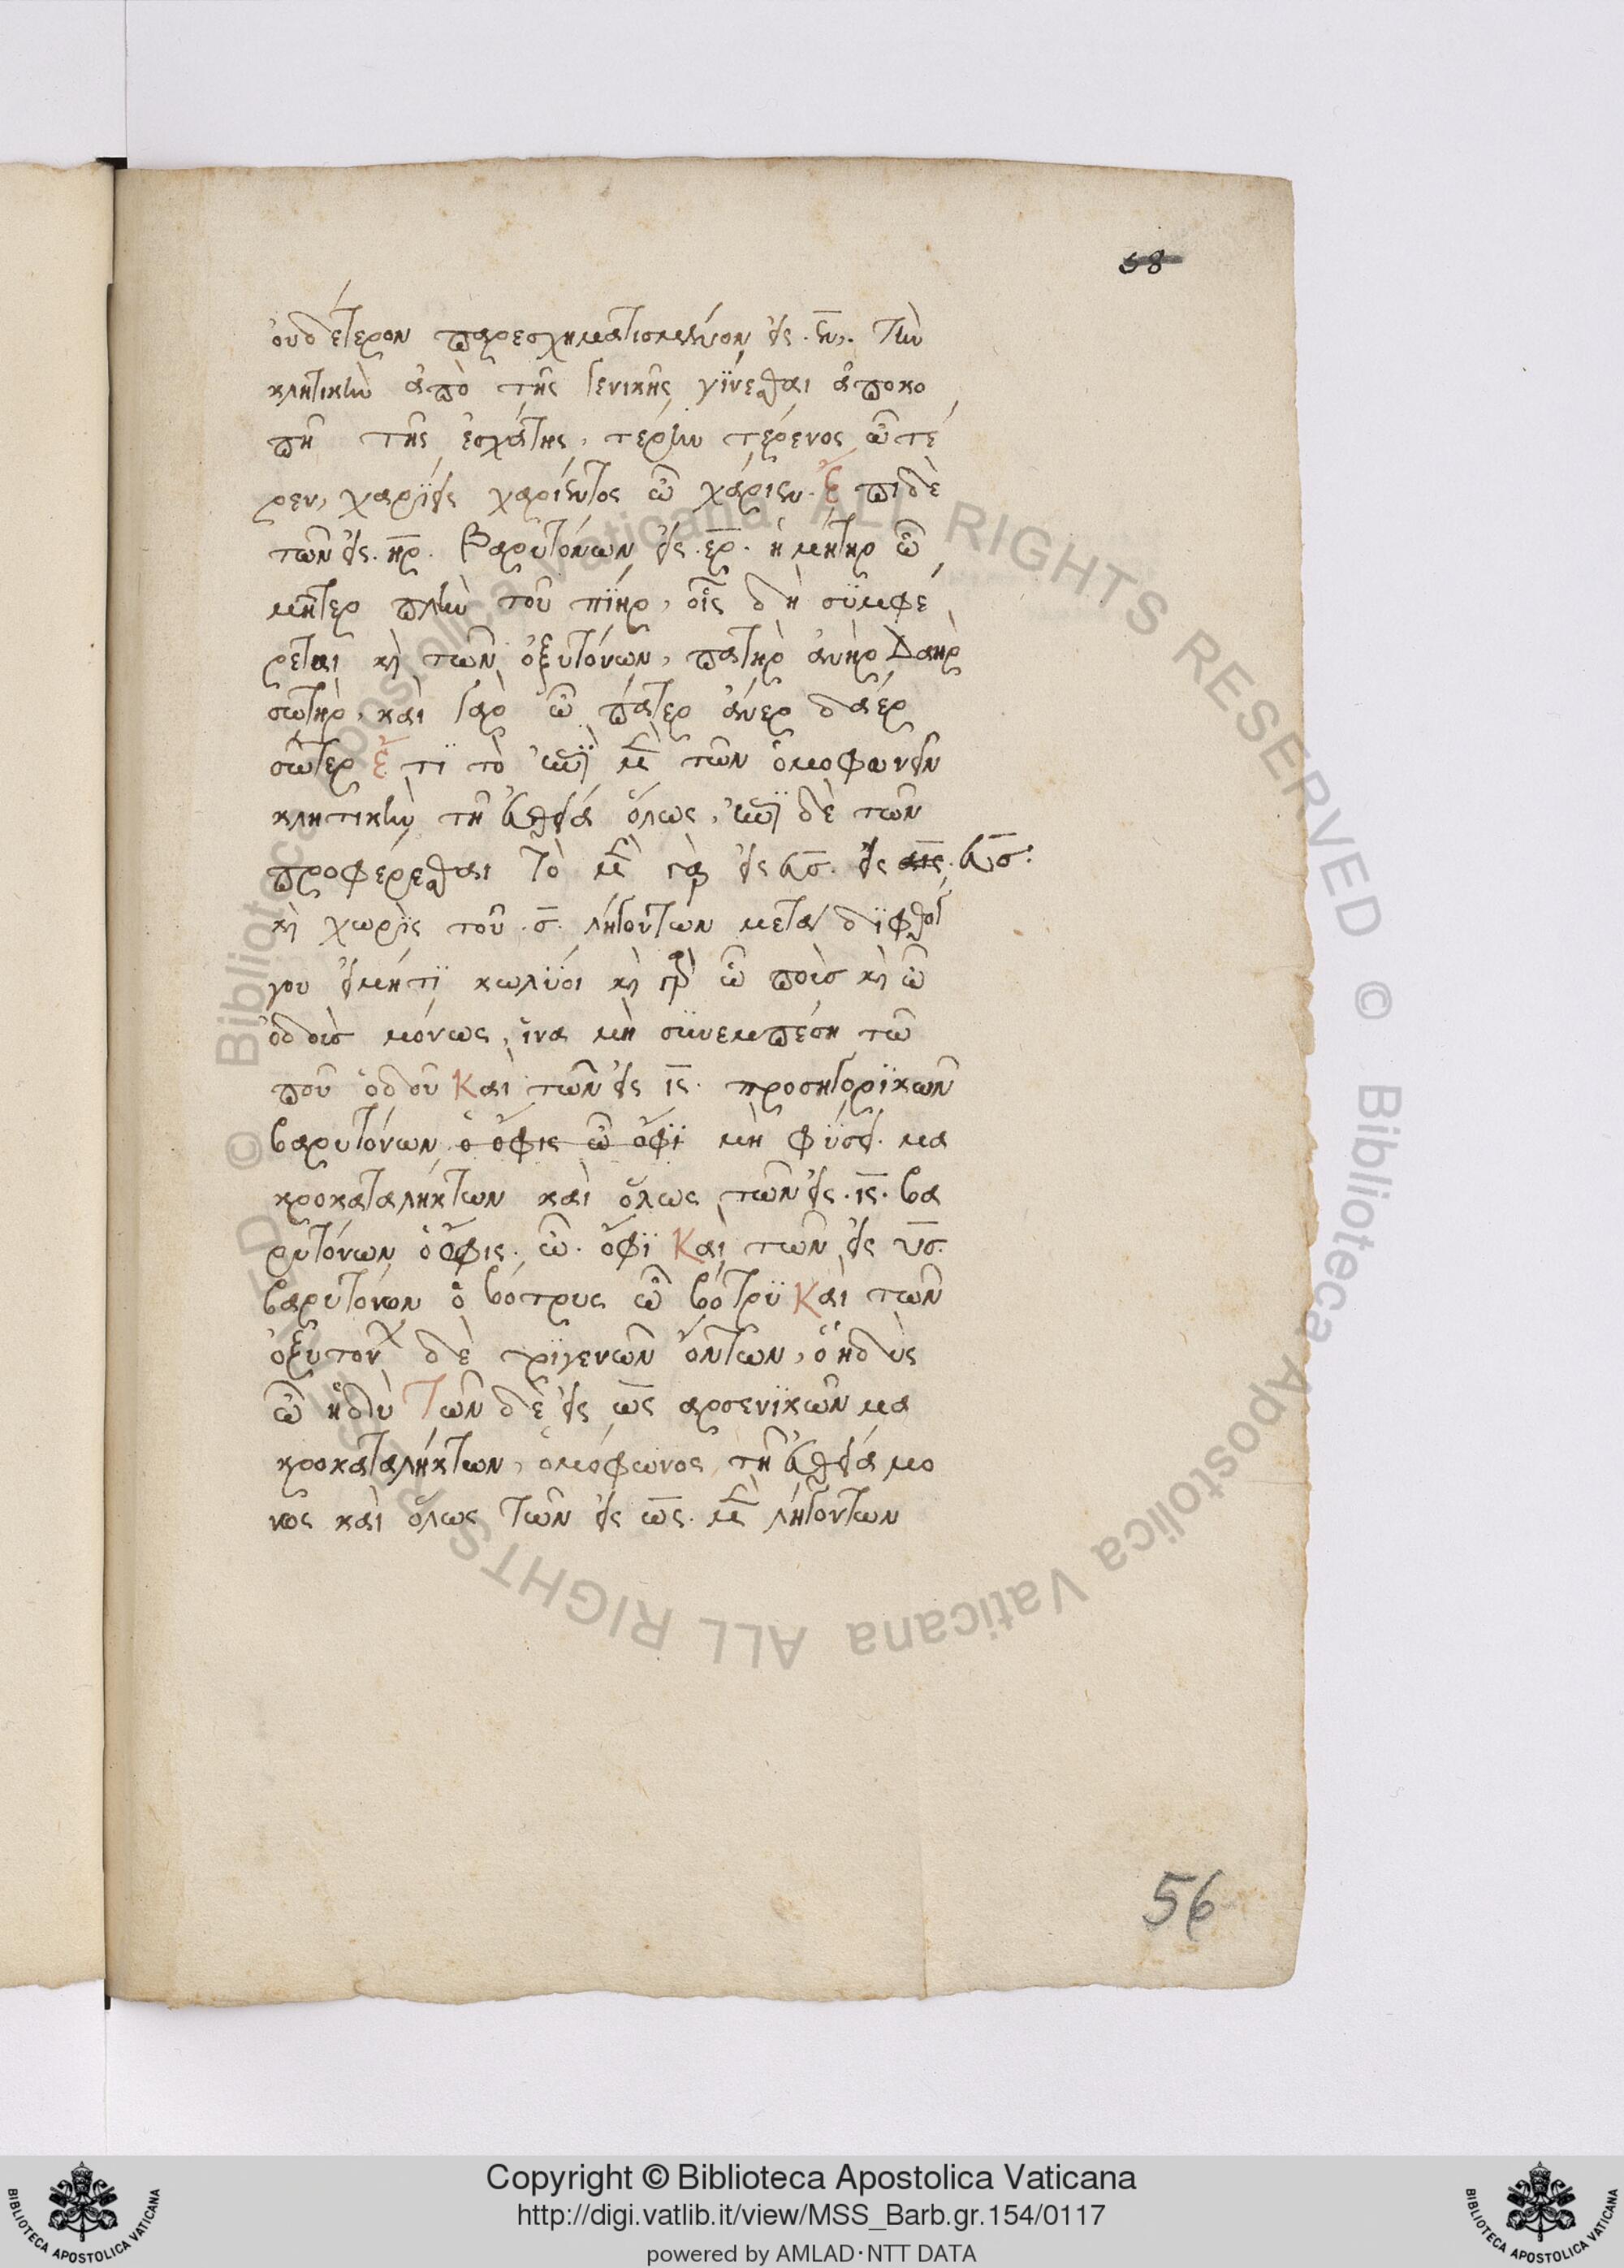 58
οὐδέτερον παρεσχηματισμένον εἰς .εν,. τὴν
κλητικὴν ἀπὸ τῆς γενικῆς γΐνεσθαι ἀποκο
πῆ τῆς ἐσχάτης, τέρην τέρενος ὦ τέ
ρεν, χαρΐεις χαρίεντος ὦ χάριεν. Ἐπιδὲ
τῶν εἰς .ηρ. βαρυτόνων εἰς .ερ. ἡ μήτηρ ὦ
μῆτερ πλὴν τοῦ πΐηρ, οἷς δὴ σϋμφέ
ρεται κὴ τῶν ὀξυτόνων, πατὴρ ἀνὴρ Δαὴρ
σωτὴρ, καὶ γὰρ ὦ πάτερ ἄνερ δαέρ
σῶτερ Ἔτϊ τὸ τῶν ὁμοφωνεῖν
κλητικὴν τῆ εὐθείᾳ ὅλως, δὲ τῶν
προφέρεσθαι τὸ εἰς ας. εἰς ας:
κὴ χωρὶς τοῦ .σ. ληγόντων μετὰ δϊφθόγ
γου εἰμήτϊ κωλϋοι κὴ ὦ ποὺσ κὴ ὦ
ὀδοὺσ μόνως, ἵνα μὴ σϋνεμπέση τῶ
ποῦ ὁδοῦ Καὶ τῶν εἰς ις. προσηγορϊκῶν
βαρυτόνων ὁ ὄφις ὦ ὄφϊ μὴ φϋσει. μα
κροκαταλήκτων καὶ ὅλως τῶν εἰς .ις. βα
ρυτόνων ὁ ὄφις. ὦ. ὄφϊ Καὶ τῶν εἰς υσ.
βαρυτόνων ὁ βότρυς ὦ βότρϋ Καὶ τῶν
ὀξυτον δὲ τρϊγενῶν ὄντων, ὁ ἡδὺς
ὦ ἡδὺ Τῶν δὲ εἰς ως ἀρσενϊκῶν μα
κροκαταλήκτων, ὁμόφωνος τῆ εὐθείᾳ μο
νος καὶ ὅλως τῶν εἰς ως. ληγόντων
56
Copyright © Biblioteca Apostolica Vaticana
http://digi.vatlib.it/view/MSS_Barb.gr.154/0117
powered by AMLAD·NTT DATA